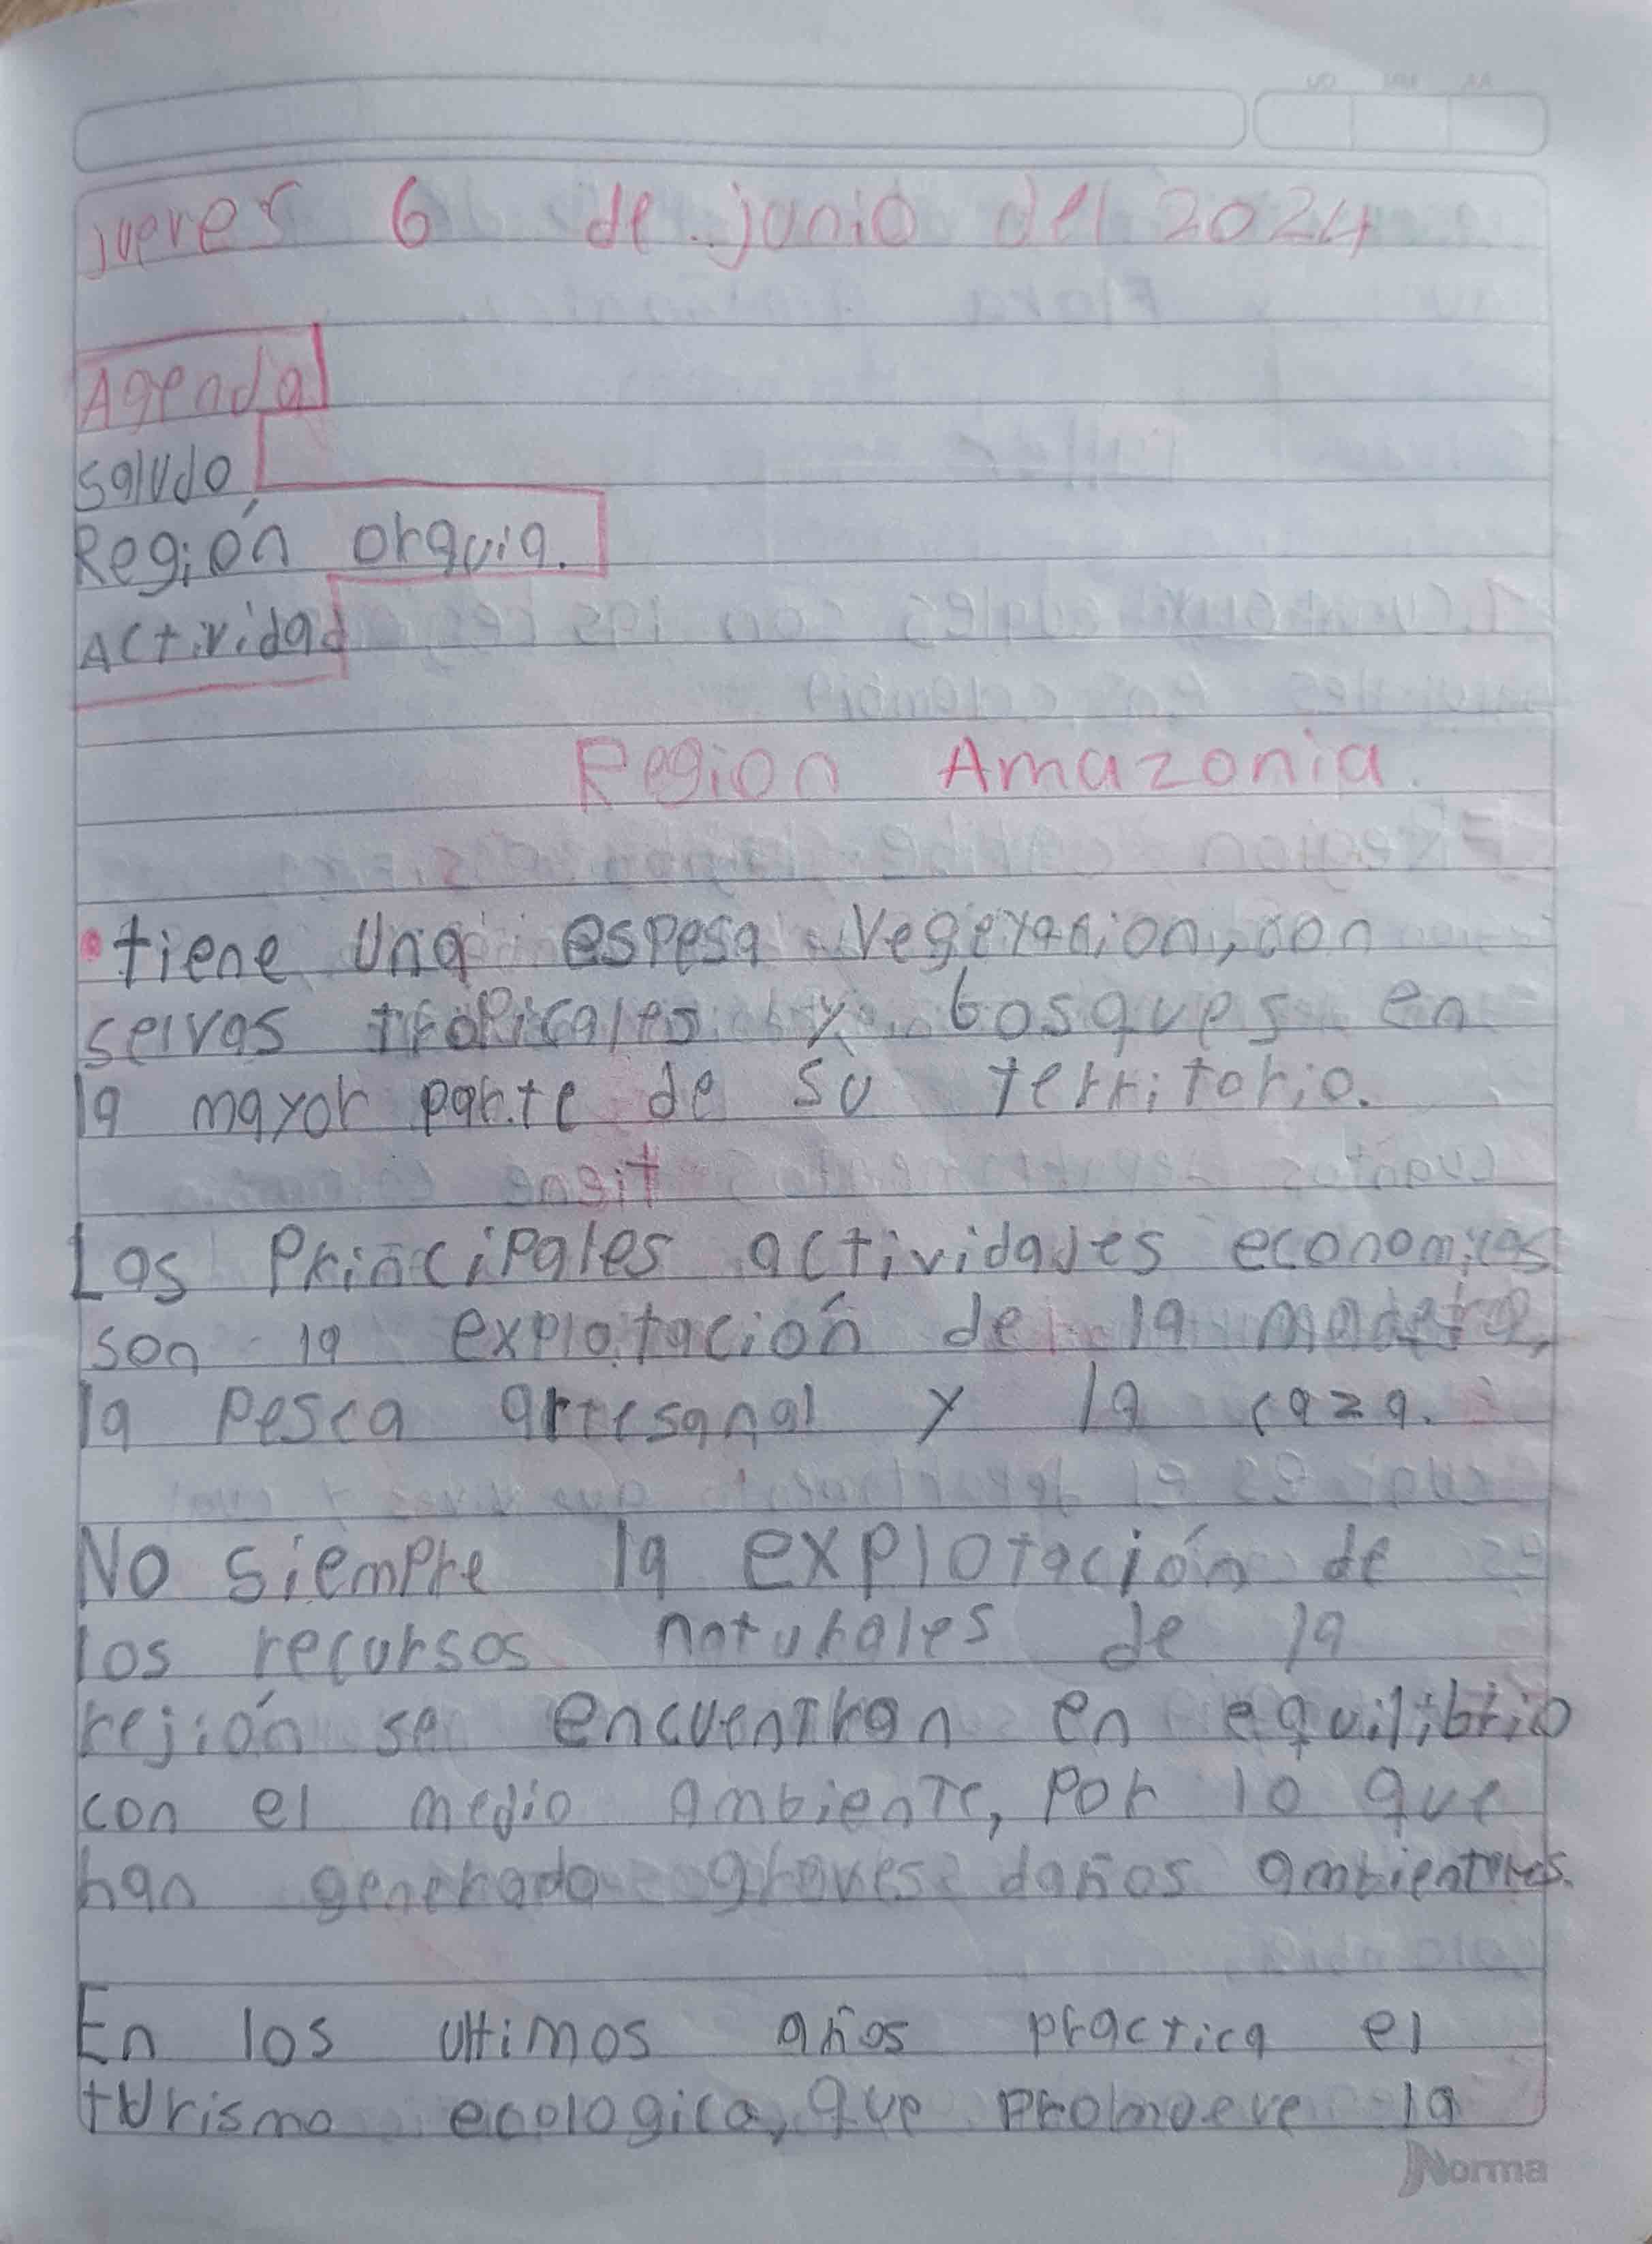 jueves 6 de junio del 2024
Agenda
saludo
Región orquia.
Actividad
Region Amazonia.
• tiene una espesa vegetacion, con
selvas tropicales y bosques en
la mayor parte de su territorio.
Las principales actividades economicas
son la explotación de la madera,
la pesca artesanal y la caza.
No siempre la explotación de
los recursos naturales de la
rejión se encuentran en equilibrio
con el medio ambiente, por lo que
han generado graves daños
En los ultimos años practica el
turismo ecologico, que promoeve la
Norma